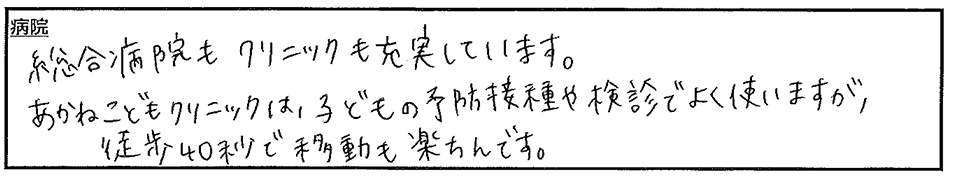 病院
総合病院も クリニックも充実しています。
あかねこどもクリニックは、子どもの予防接種や検診でよく使いますが、
徒歩40秒で移動も楽ちんです。